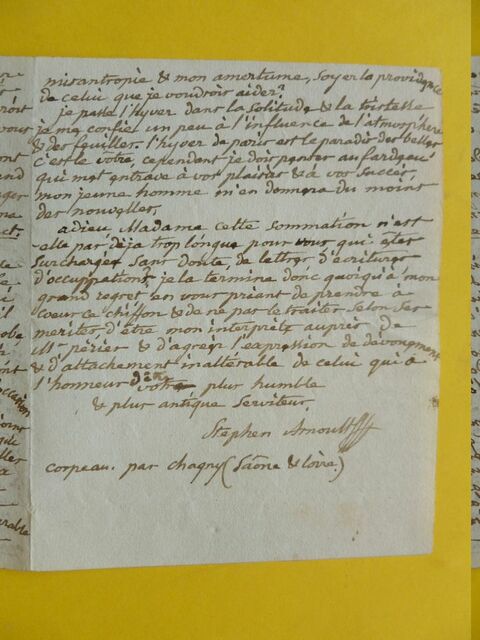 misantropie & mon amertume, soyer la providence
de celui que je voudrois aider?
je passe l'hyver dans la solitude & la tristesse
je me confie un peu à l'influence de l'atmosphère
& des feuilles. l'hyver de paris est le paradis des belles
c'est le votre, cependant je dois penser au fardeau
qui met entrave à vos plaisirs & à vos succès,
mon jeune homme m'en donnera du moins
des nouvelles.
adieu, Madame cette sommation n'est
elle pas déja trop longue pour vous qui etes
surchargée sans doute, de lettres d'écritures
d'occupations, je la termine donc quoiqu'à mon
grand regret en vous priant de prendre à
coeur ce chiffon & de ne pas le traiter selon ses
merites d'être mon interprète auprès de
Mr périer & d'agréer l'expression de dévouement
& d'attachement inaltérable de celui qui à
l'honneur d'être votre plus humble
& plus antique serviteur.
Stephen Arnoult
corpeau. par chagny (Saône & loire.)